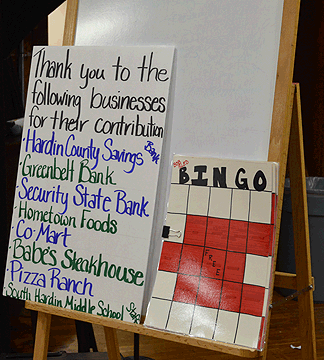 Thank you to the
following businesses
for their contribution
·Hardin County Savings Bank
·Greenbelt Bank
·Security State Bank
·Hometown Foods
·Co-Mart
·Babe's Steakhouse
·Pizza Ranch
·South Hardin Middle School
BINGO
FREE